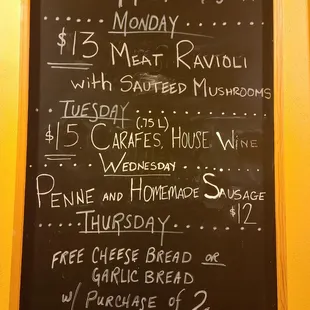 MONDAY
$13 MEAT RAVIOLI
WITH SAUTEED MUSHROOMS
TUESDAY
$15 CARAFES, HOUSE WINE
(.75L)
WEDNESDAY
PENNE AND HOMEMADE SAUSAGE
$12
THURSDAY
FREE CHEESE BREAD OR
GARLIC BREAD
W/ PURCHASE OF 2